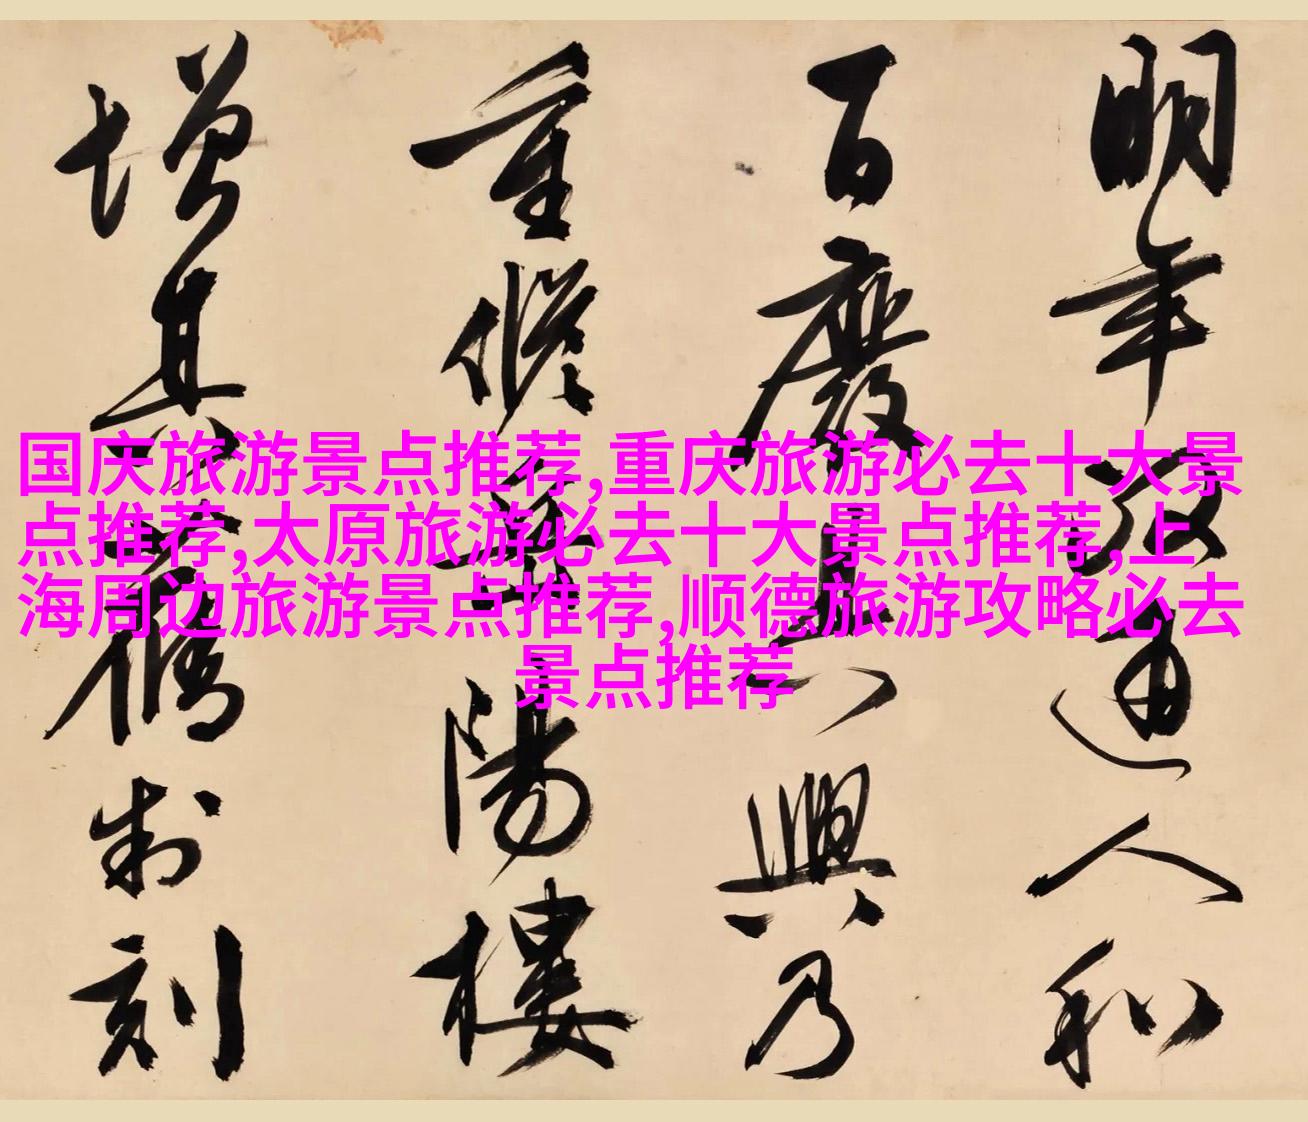 明年政通人和
百廢具興乃
重修岳陽樓
增其舊制刻
国庆旅游景点推荐,重庆旅游必去十大景
点推荐,太原旅游必去十大景点推荐,上
海周边旅游景点推荐,顺德旅游攻略必去
景点推荐